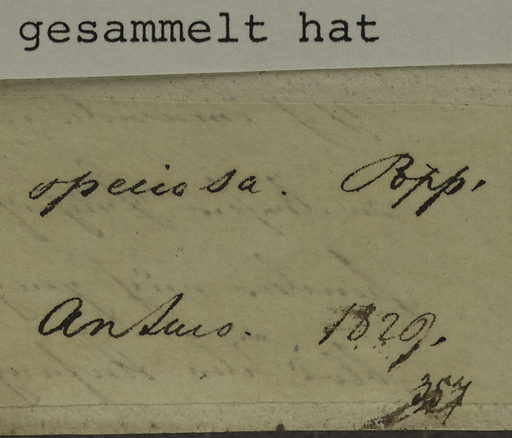 gesammelt hat
speciosa. Pöpp.
Antuco. 1829.
357